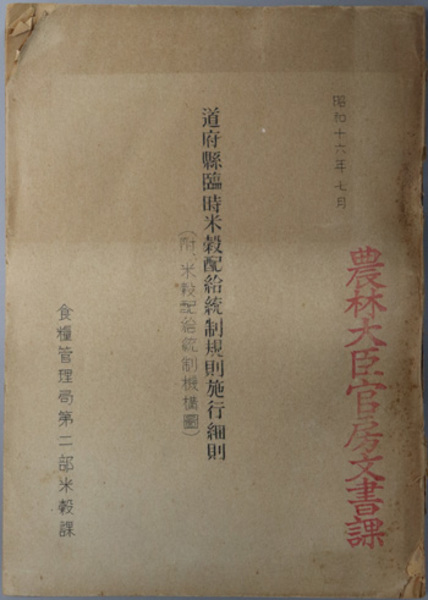 昭和十六年七月
農林大臣官房文書課
道府縣臨時米穀配給統制規則施行細則
（附、米穀配給統制機構圖）
食糧管理局第二部米穀課